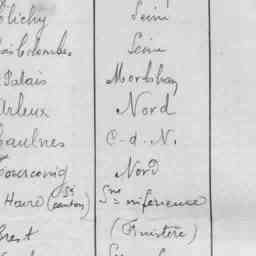 Clichy Seine
Colombes Seine
Palais Morbihan
Arleux Nord
Caulnes C-d-N.
Tourcoing Nord
Havre (5e canton) Sne inférieure
Brest (Finistère)